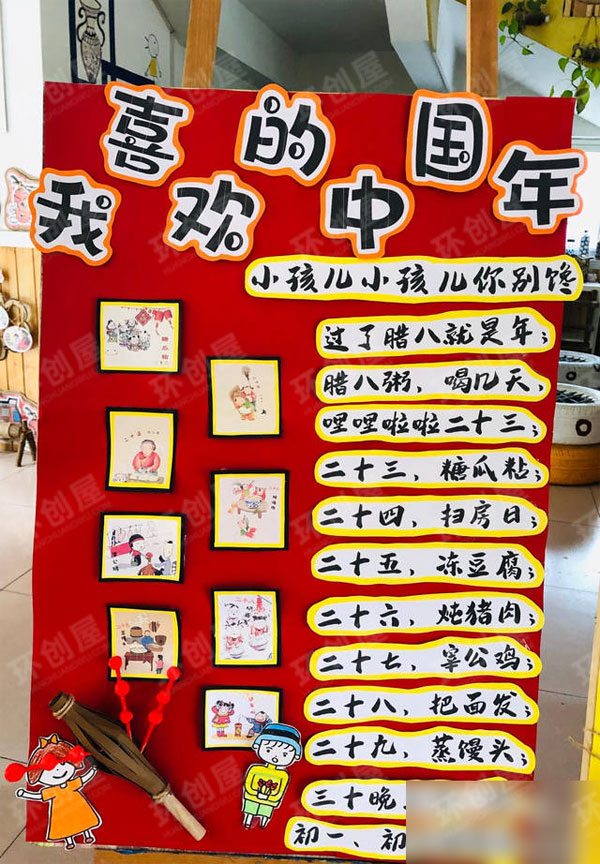 我喜欢的中国年
小孩儿小孩儿你别馋
过了腊八就是年；
腊八粥，喝几天，
哩哩啦啦二十三；
二十三，糖瓜粘；
二十四，扫房日；
二十五，冻豆腐；
二十六，炖猪肉；
二十七，宰公鸡；
二十八，把面发；
二十九，蒸馒头；
三十晚
初一、初
环创屋